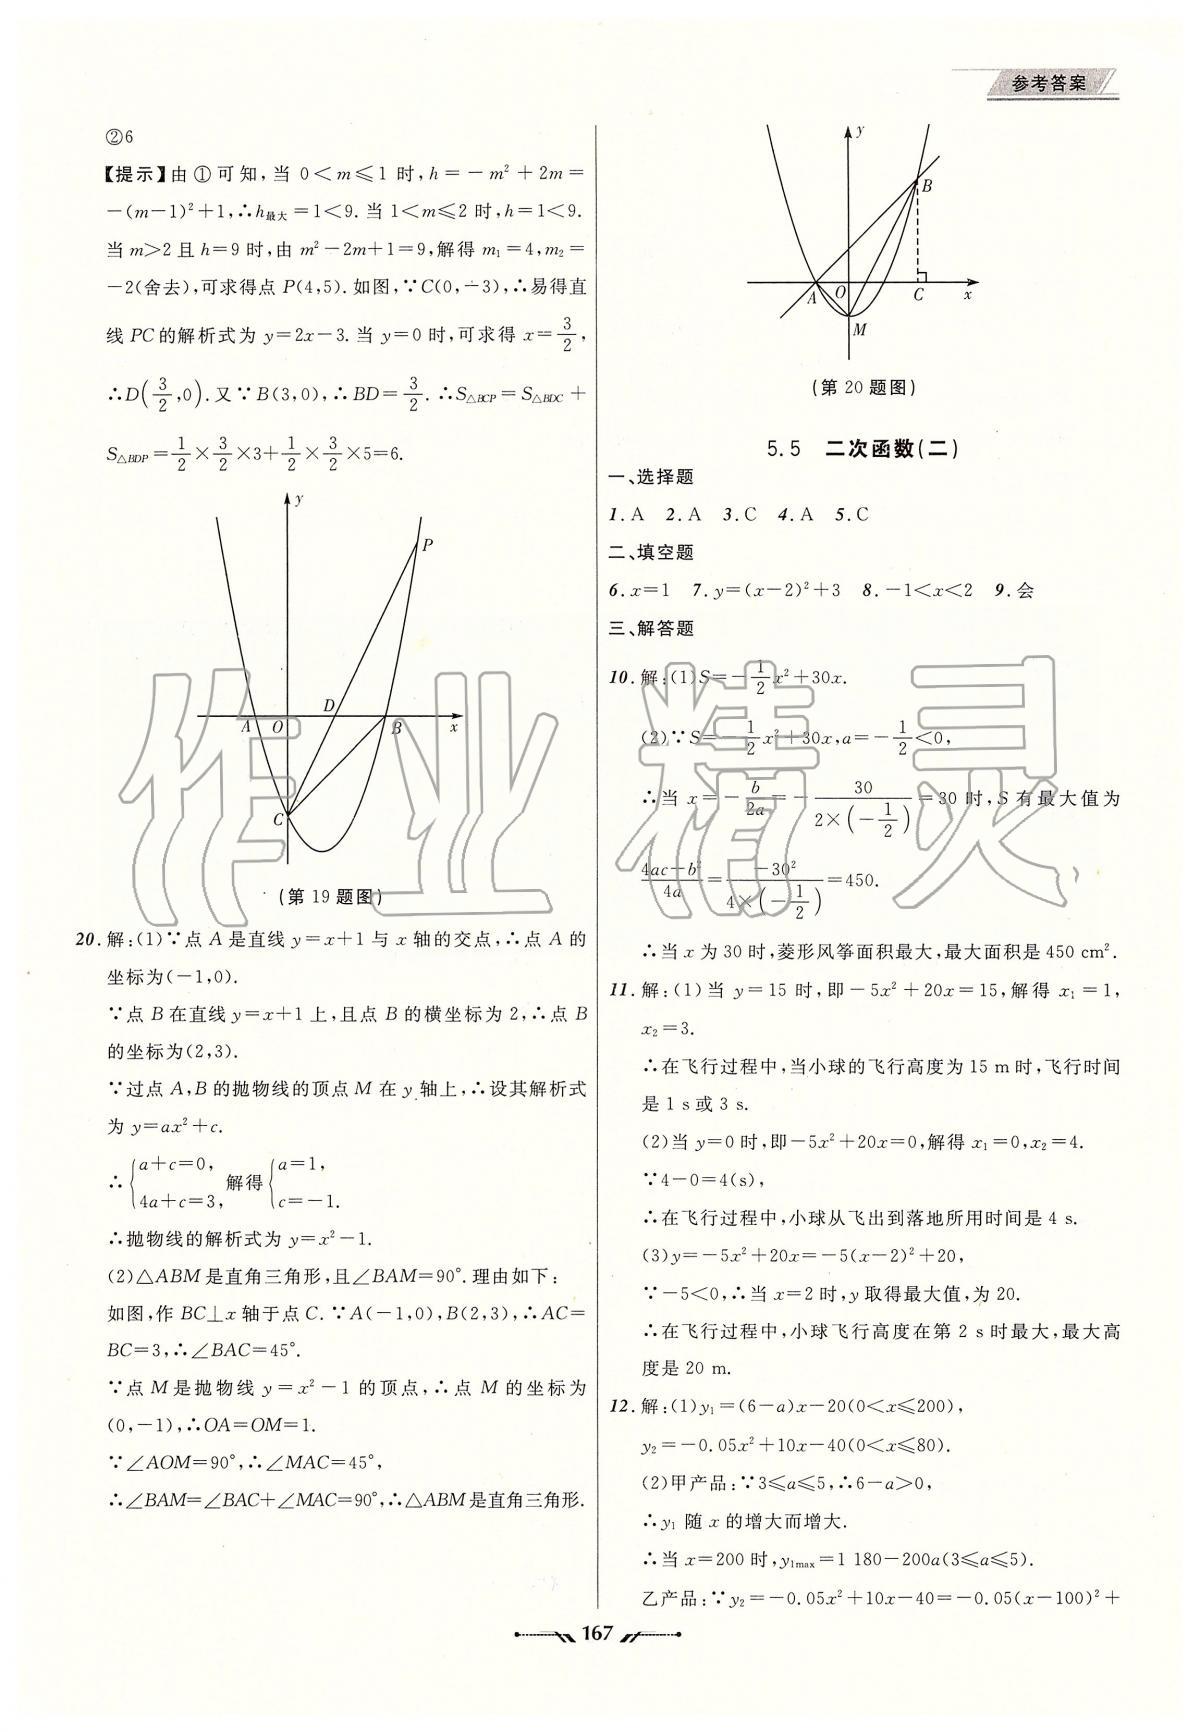 参考答案
②6
【提示】由①可知,当 0<m≤1 时,h=-m²+2m=
-(m-1)²+1,∴h最大=1<9.当 1<m≤2 时,h=1<9.
当 m>2 且 h=9 时,由 m²-2m+1=9,解得 m₁=4,m₂=
-2(舍去),可求得点 P(4,5).如图,∵C(0,-3),∴易得直
线 PC 的解析式为 y=2x-3.当 y=0 时,可求得 x=3/2,
∴D(3/2,0).又∵B(3,0),∴BD=3/2.∴S△BCP=S△BDC+
S△BDP=1/2×3/2×3+1/2×3/2×5=6.
y
P
A
O
D
B
x
C
(第 19 题图)
20.解:(1)∵点 A 是直线 y=x+1 与 x 轴的交点,∴点 A 的
坐标为(-1,0).
∵点 B 在直线 y=x+1 上,且点 B 的横坐标为 2,∴点 B
的坐标为(2,3).
∵过点 A,B 的抛物线的顶点 M 在 y 轴上,∴设其解析式
为 y=ax²+c.
∴{a+c=0, 4a+c=3, 解得{a=1, c=-1.
∴抛物线的解析式为 y=x²-1.
(2)△ABM 是直角三角形,且∠BAM=90°.理由如下:
如图,作 BC⊥x 轴于点 C.∵A(-1,0),B(2,3),∴AC=
BC=3,∴∠BAC=45°.
∵点 M 是抛物线 y=x²-1 的顶点,∴点 M 的坐标为
(0,-1),∴OA=OM=1.
∵∠AOM=90°,∴∠MAC=45°,
∴∠BAM=∠BAC+∠MAC=90°,∴△ABM 是直角三角形.
y
B
A
O
C
x
M
(第 20 题图)
5.5 二次函数(二)
一、选择题
1.A 2.A 3.C 4.A 5.C
二、填空题
6.x=1 7.y=(x-2)²+3 8.-1<x<2 9.会
三、解答题
10.解:(1)S=-1/2x²+30x.
(2)∵S=-1/2x²+30x,a=-1/2<0,
∴当 x=-b/2a=-30/(2×(-1/2))=30 时,S 有最大值为
(4ac-b²)/4a=-30²/(4×(-1/2))=450.
∴当 x 为 30 时,菱形风筝面积最大,最大面积是 450 cm².
11.解:(1)当 y=15 时,即-5x²+20x=15,解得 x₁=1,
x₂=3.
∴在飞行过程中,当小球的飞行高度为 15 m 时,飞行时间
是 1 s 或 3 s.
(2)当 y=0 时,即-5x²+20x=0,解得 x₁=0,x₂=4.
∵4-0=4(s),
∴在飞行过程中,小球从飞出到落地所用时间是 4 s.
(3)y=-5x²+20x=-5(x-2)²+20,
∵-5<0,∴当 x=2 时,y 取得最大值,为 20.
∴在飞行过程中,小球飞行高度在第 2 s 时最大,最大高
度是 20 m.
12.解:(1)y₁=(6-a)x-20(0<x≤200),
y₂=-0.05x²+10x-40(0<x≤80).
(2)甲产品:∵3≤a≤5,∴6-a>0,
∴y₁ 随 x 的增大而增大.
∴当 x=200 时,y₁max=1 180-200a(3≤a≤5).
乙产品:∵y₂=-0.05x²+10x-40=-0.05(x-100)²+
167
作业精灵